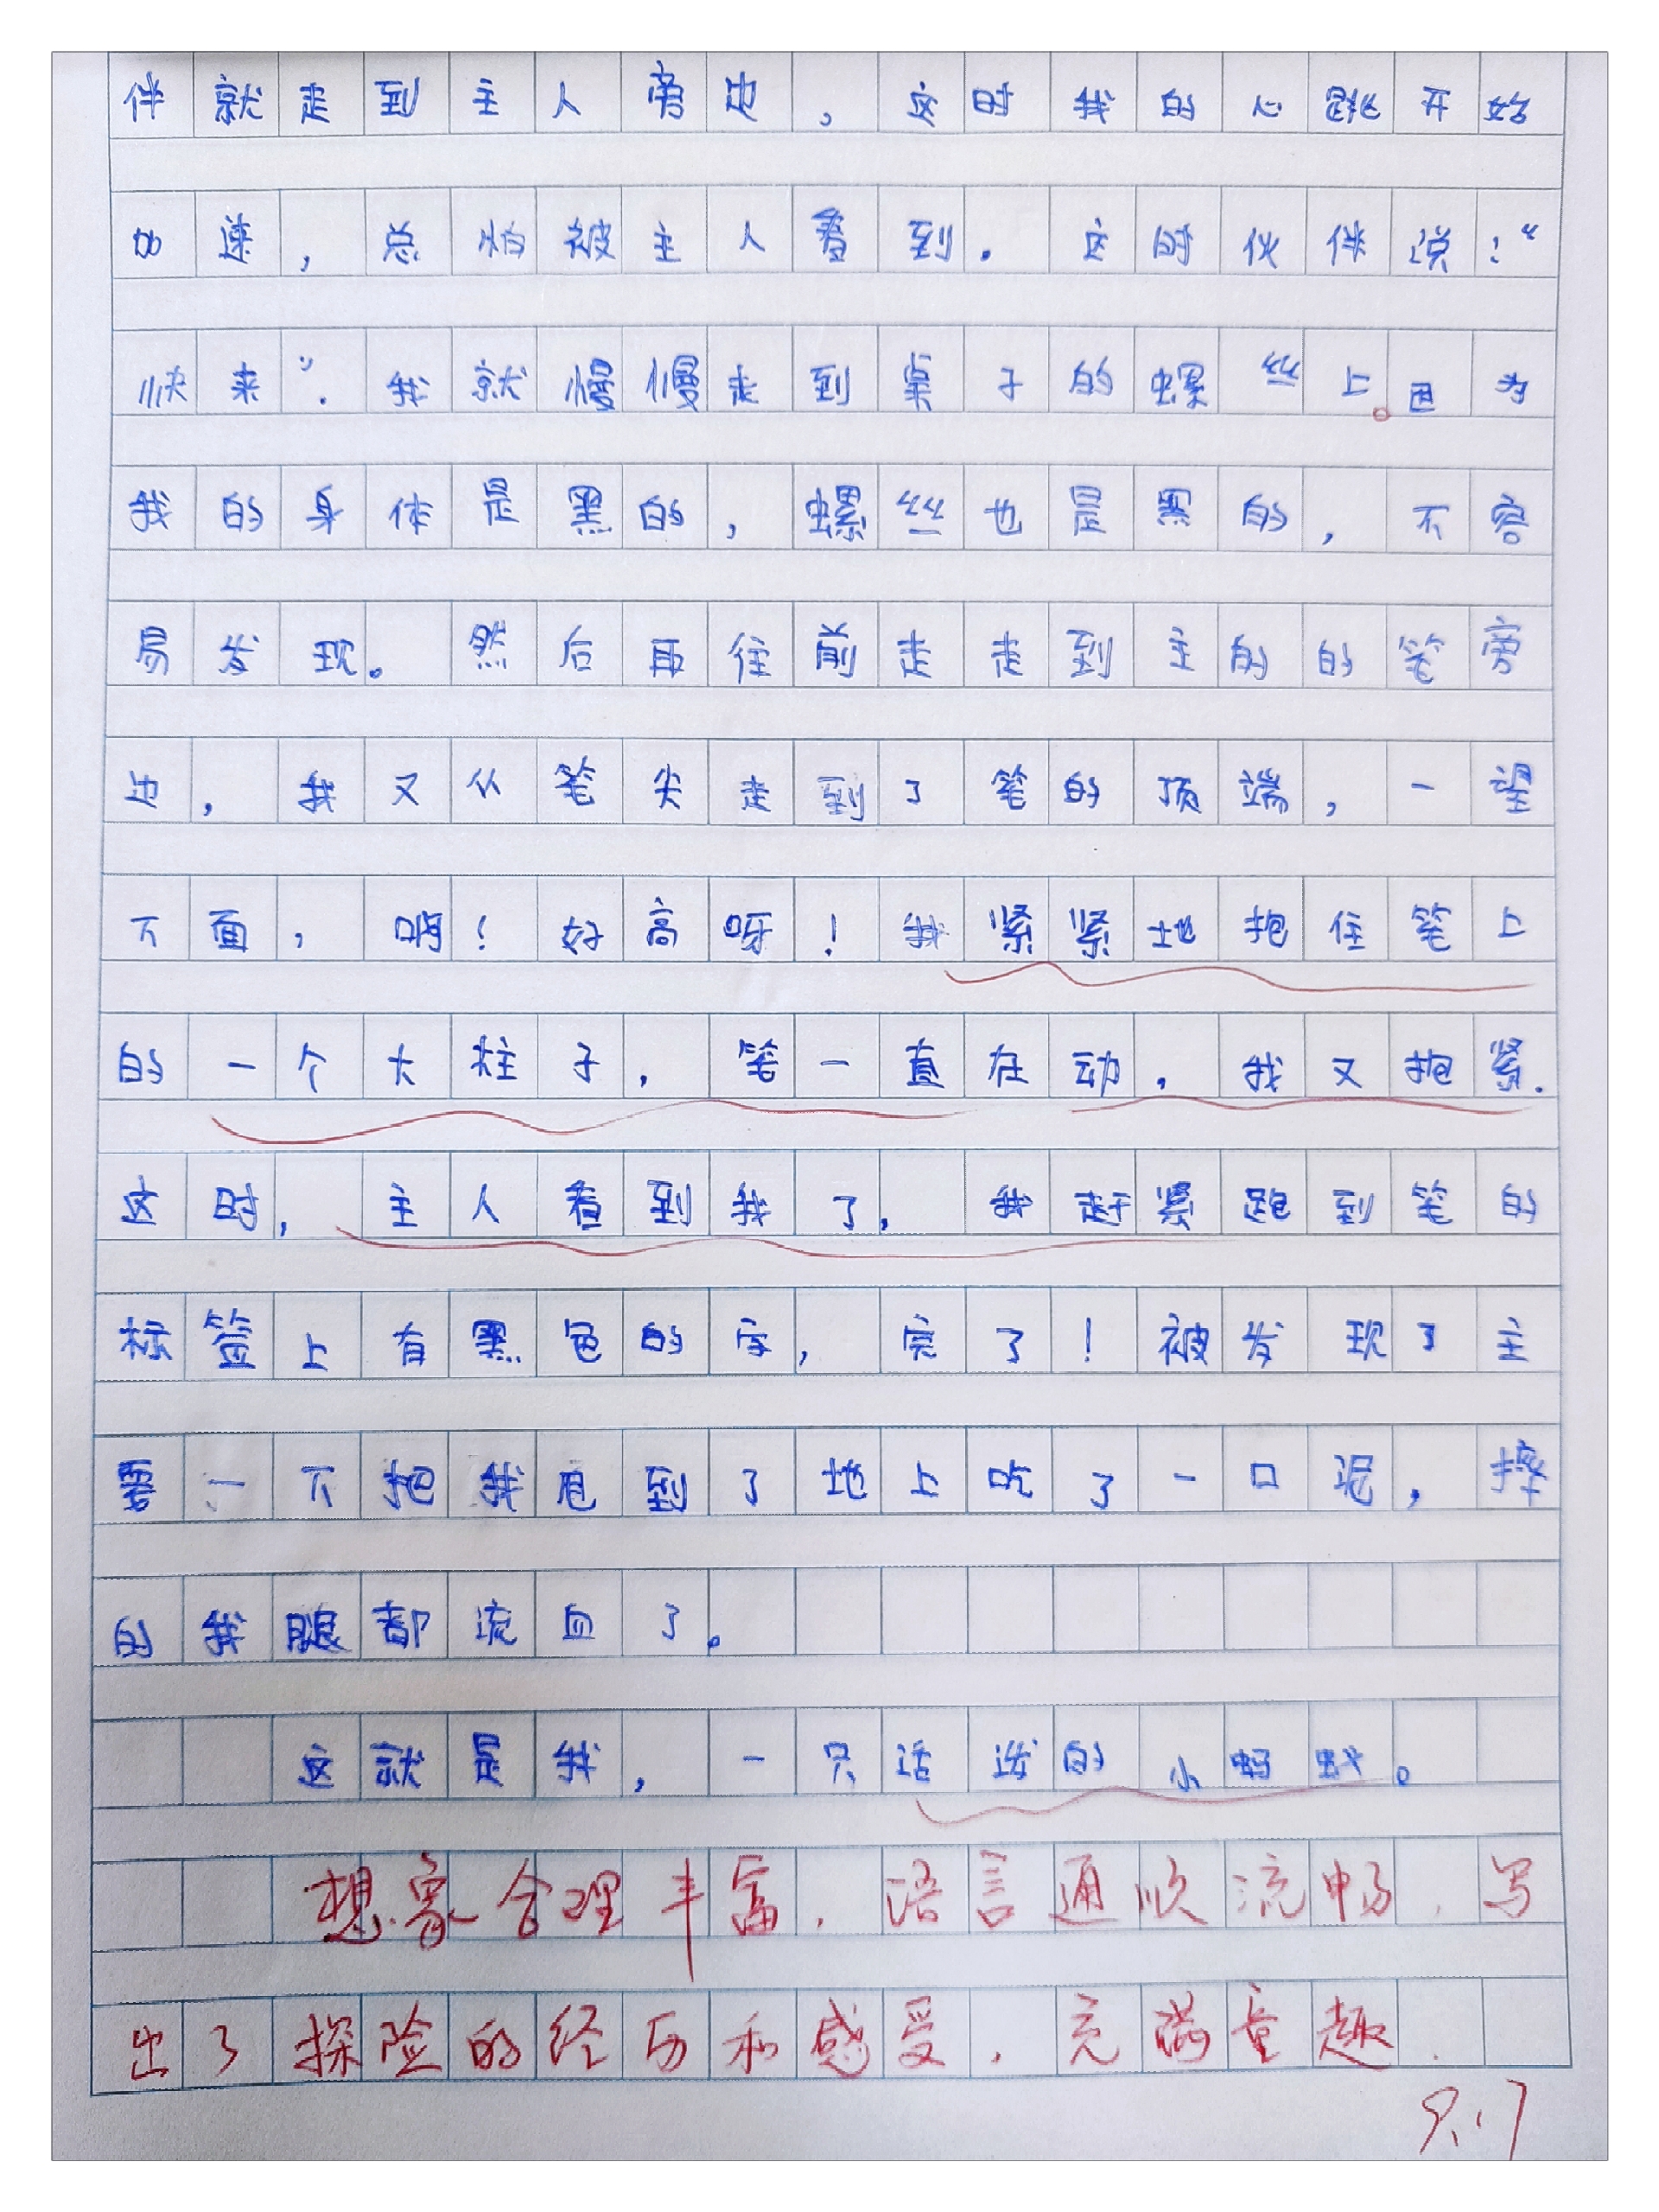 伴就走到主人旁边，这时我的心跳开始
加速，总怕被主人看到。这时伙伴说：“
快来”。我就慢慢走到桌子的螺丝上。因为
我的身体是黑的，螺丝也是黑的，不容
易发现。然后再往前走走到主的的笔旁
边，我又从笔尖走到了笔的顶端，一望
下面，啊！好高呀！我紧紧地抱住笔上
的一个大柱子，笔一直在动，我又抱紧.
这时，主人看到我了，我赶紧跑到笔的
标签上有黑色的字，完了！被发现了主
要一下把我甩到了地上吃了一口泥，摔
的我腿都流血了。
这就是我，一只活泼的小蚂蚁。
想象合理丰富，语言通顺流畅，写
出了探险的经历和感受，充满童趣.
9.17